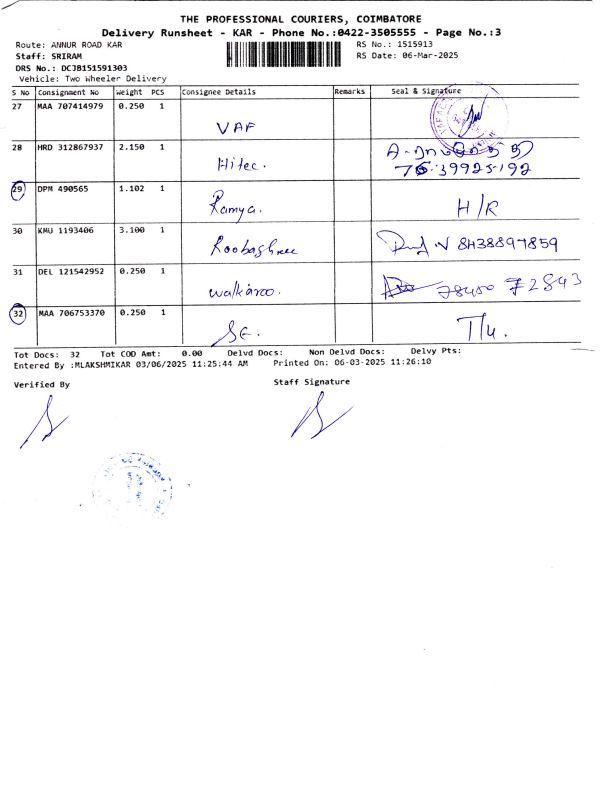 THE PROFESSIONAL COURIERS, COIMBATORE
Delivery Runsheet - KAR - Phone No.:0422-3505555 - Page No.:3
Route: ANNUR ROAD KAR
RS No.: 1515913
Staff: SRIRAM
RS Date: 06-Mar-2025
DRS No.: DCJB151591303
Vehicle: Two Wheeler Delivery
S No Consignment No Weight PCS Consignee Details Remarks Seal & Signature
27 MAA 707414979 0.250 1 VAF
28 HRD 312867937 2.150 1 Hitec.
29 DPM 490565 1.102 1 Ramya. H/R
30 KMU 1193406 3.100 1 Roobashree 8438897859
31 DEL 121542952 0.250 1 walkaroo. 78450 72843
32 MAA 706753370 0.250 1 SE. T/u.
Tot Docs: 32 Tot COD Amt: 0.00 Delvd Docs: Non Delvd Docs: Delvy Pts:
Entered By :MLAKSHMIKAR 03/06/2025 11:25:44 AM Printed On: 06-03-2025 11:26:10
Verified By
Staff Signature